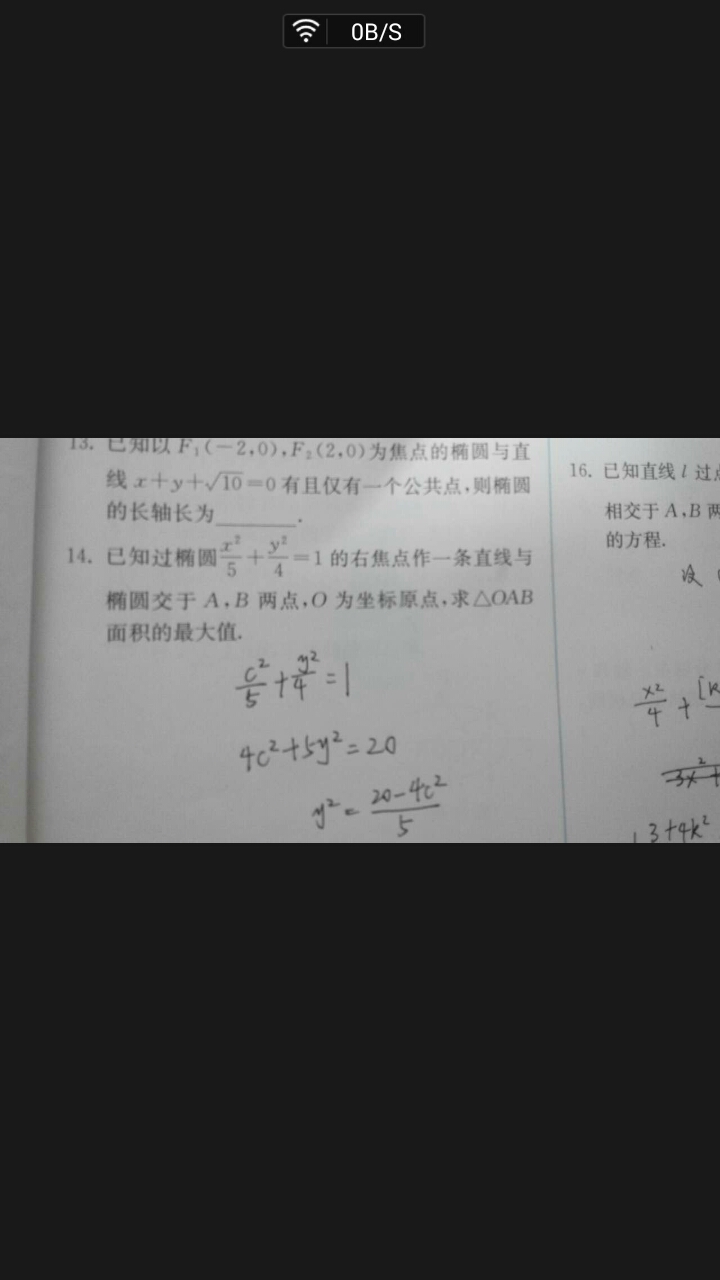 0B/S
13. 已知以 F₁(-2,0),F₂(2,0)为焦点的椭圆与直
线 x+y+√10=0 有且仅有一个公共点,则椭圆
的长轴长为________.
14. 已知过椭圆x²/5+y²/4=1 的右焦点作一条直线与
椭圆交于 A,B 两点,O 为坐标原点,求△OAB
面积的最大值.
c²/5+y²/4=1
4c²+5y²=20
y²=(20-4c²)/5
16. 已知直线 l 过点
相交于 A,B 两
的方程.
设
x²/4+
3+4k²